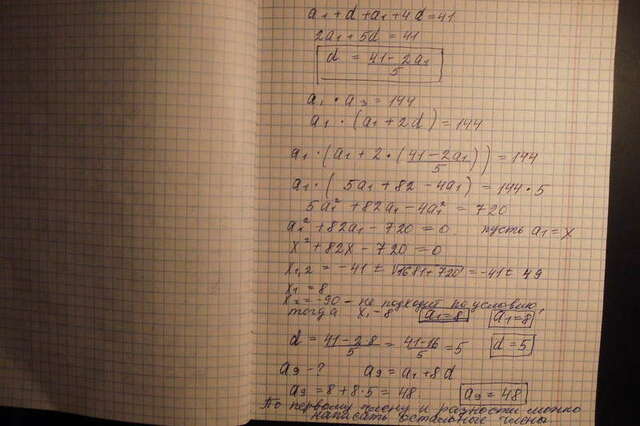 a₁ + d + a₁ + 4d = 41
2a₁ + 5d = 41
d = (41 - 2a₁)/5
a₁ · a₃ = 144
a₁ · (a₁ + 2d) = 144
a₁ · (a₁ + 2 · ((41 - 2a₁)/5)) = 144
a₁ · (5a₁ + 82 - 4a₁) = 144 · 5
5a₁² + 82a₁ - 4a₁² = 720
a₁² + 82a₁ - 720 = 0 пусть a₁ = x
x² + 82x - 720 = 0
x₁,₂ = -41 ± √(1681 + 720) = -41 ± 49
x₁ = 8
x₂ = -90 - не подходит по условию,
тогда x₁ = 8 a₁ = 8 a₁ = 8
d = (41 - 2·8)/5 = (41 - 16)/5 = 5 d = 5
a₉ - ? a₉ = a₁ + 8d
a₉ = 8 + 8·5 = 48 a₉ = 48
По первому члену и разности можно
написать остальные члены